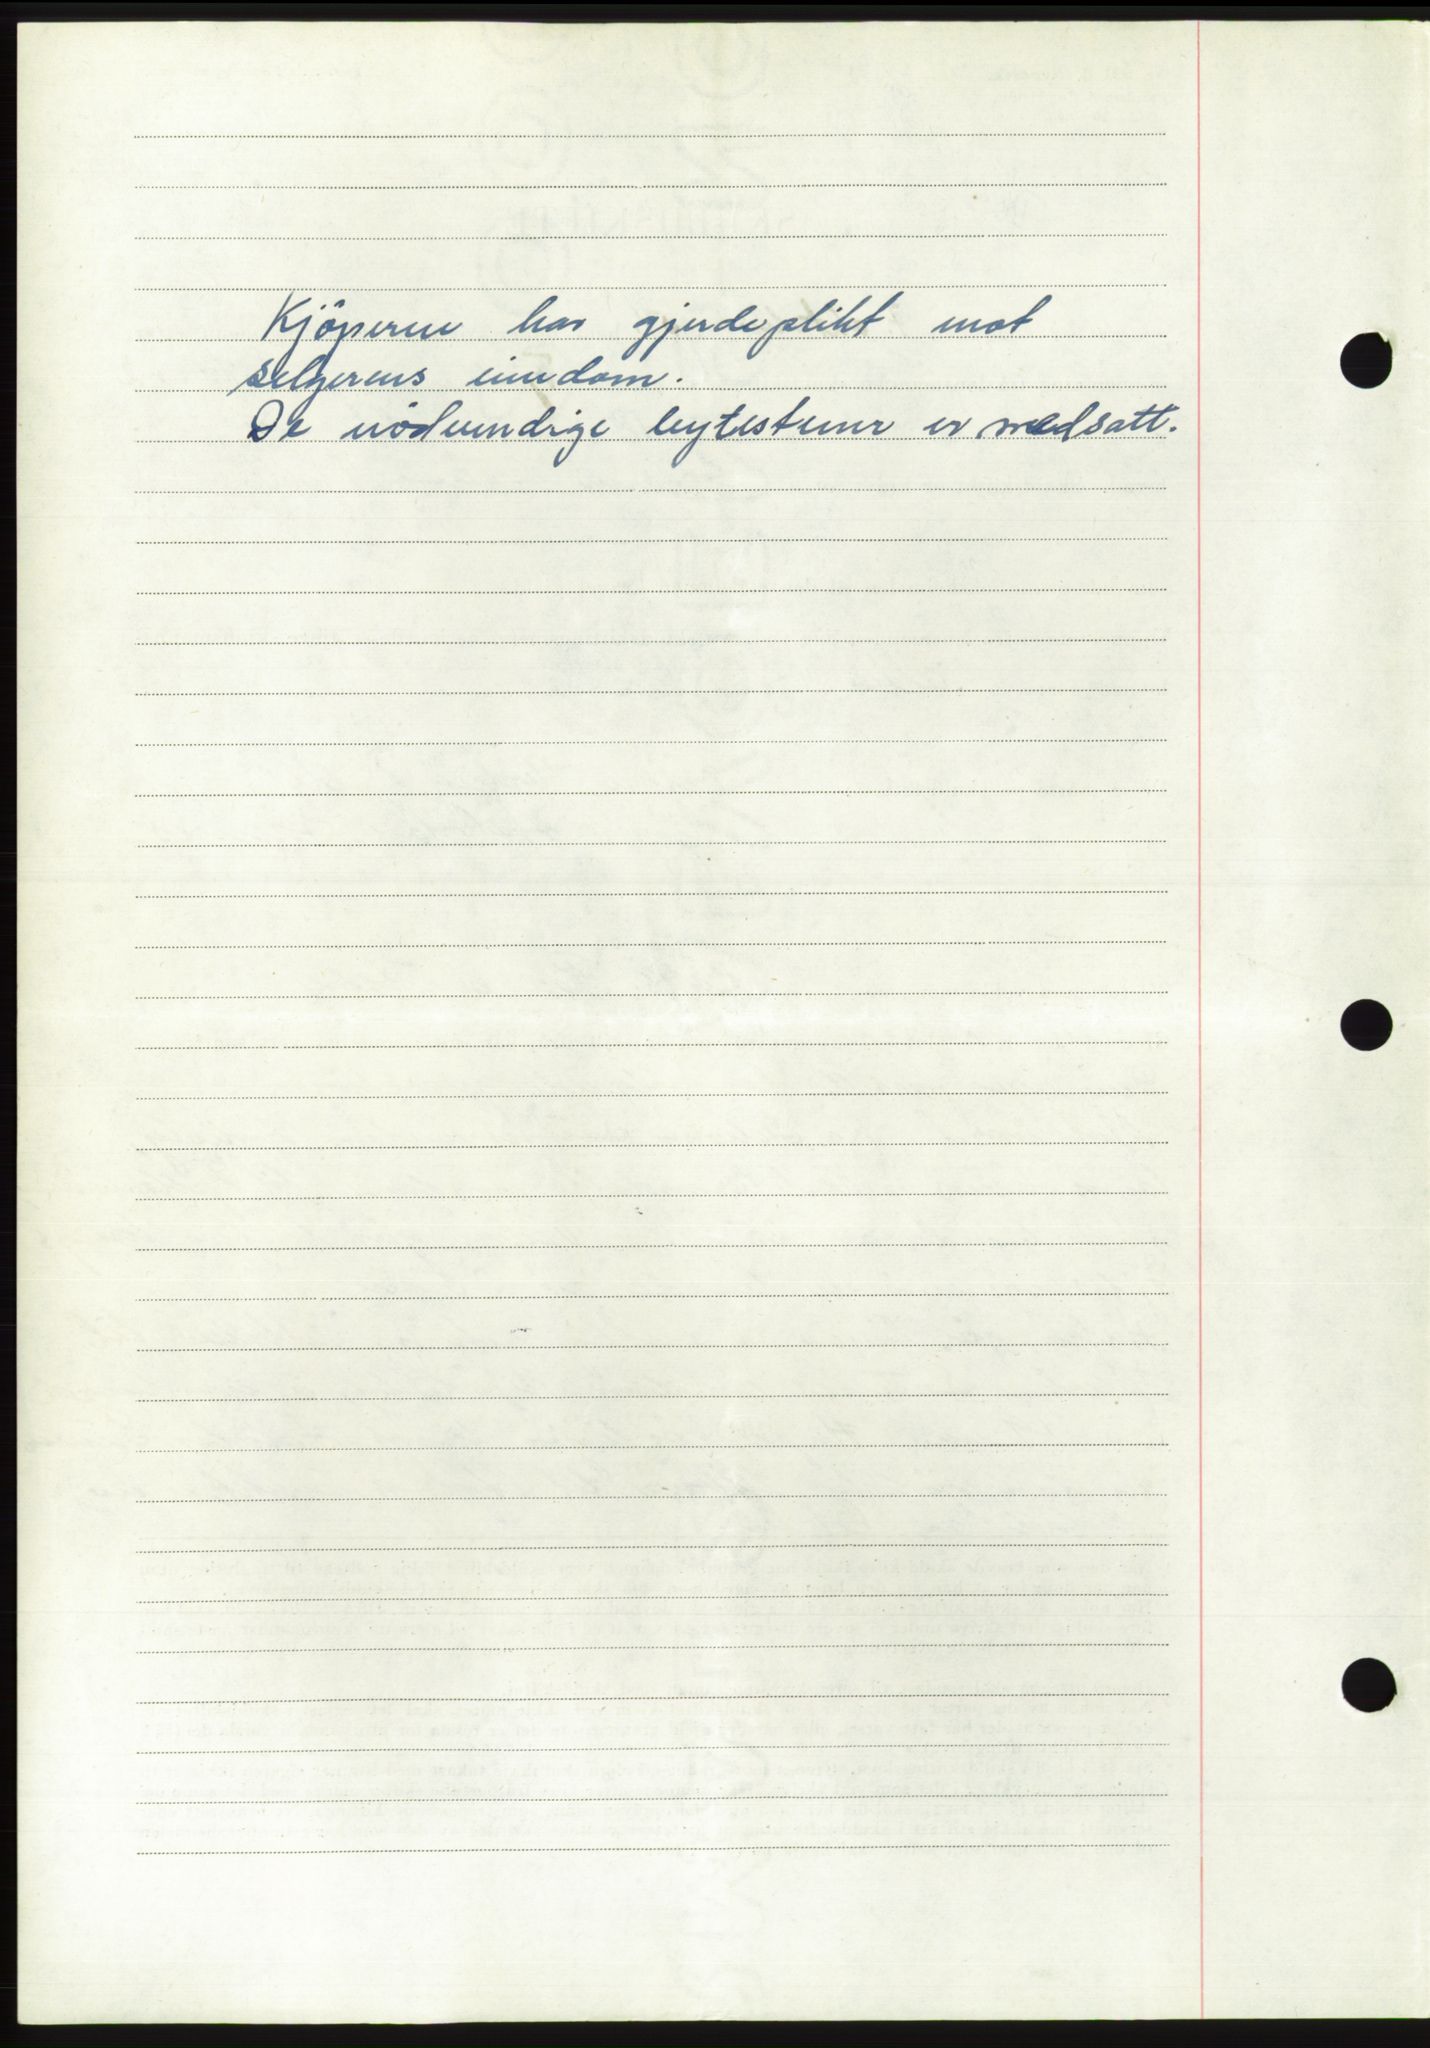 Kjöperen har gjerdeplikt mot
selgerens eiendom.
De nödvendige bytestener er nedsatt.